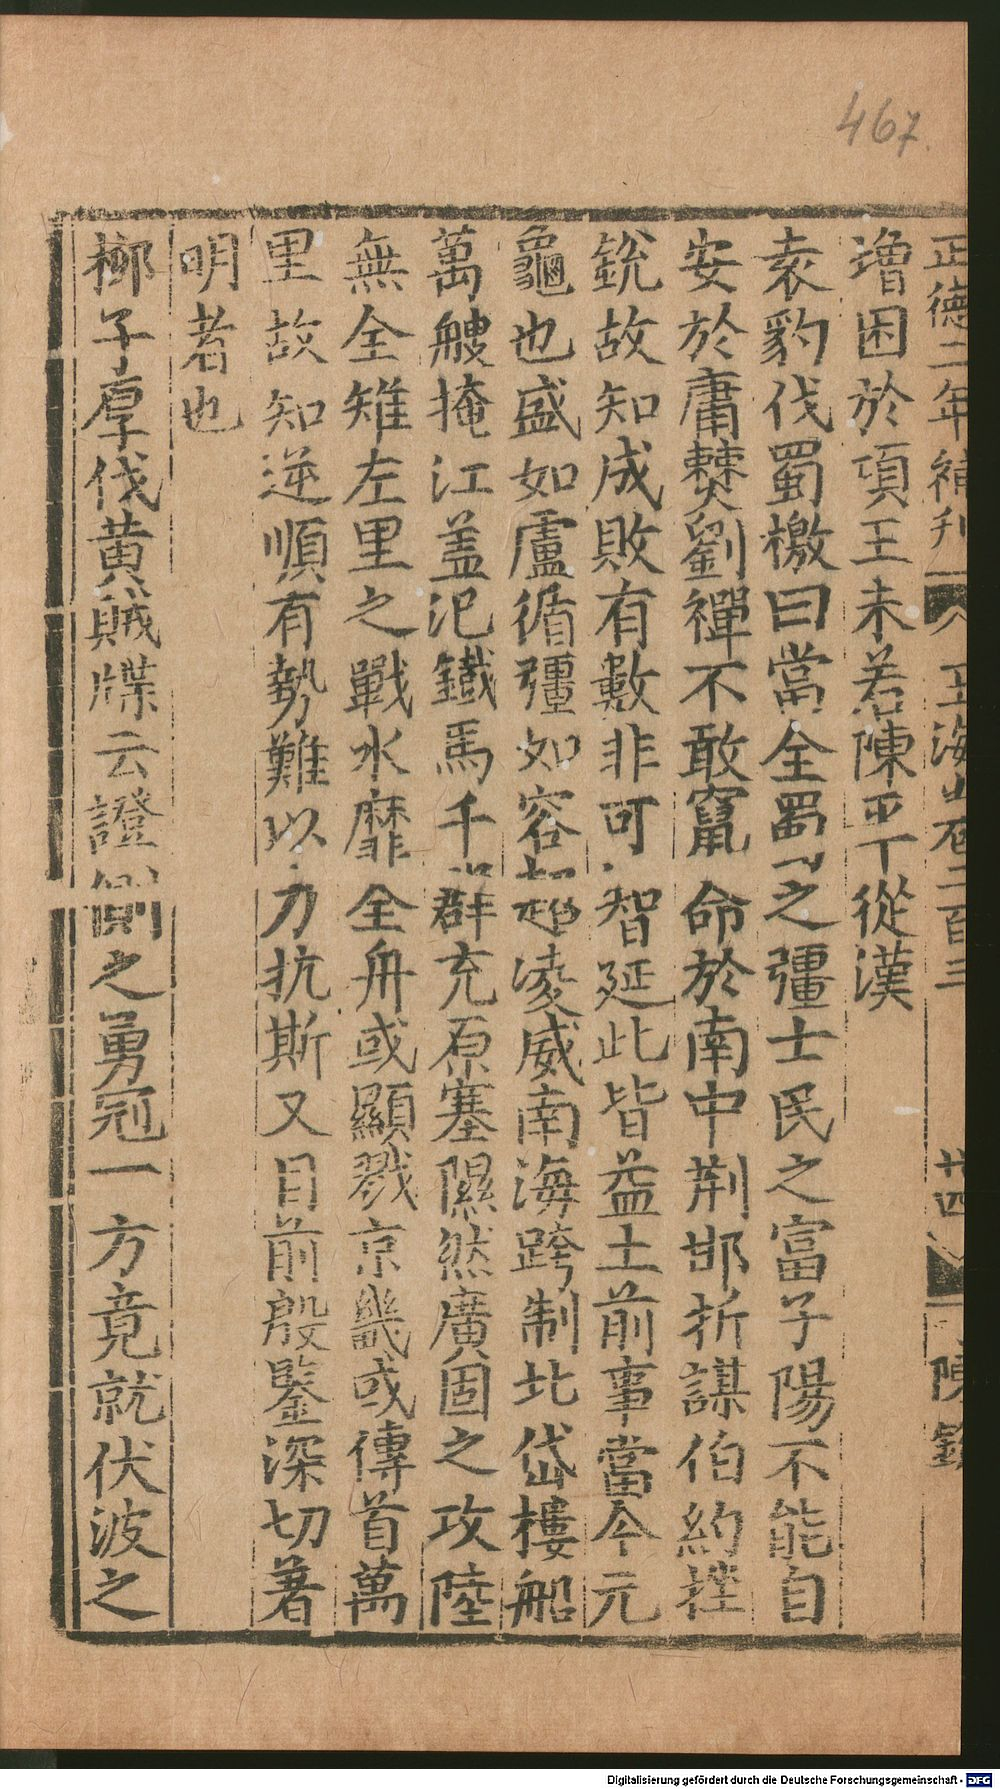 467.
正德二年補刋 玉海卷二百三 廿四
增困於項王未若陳平下從漢
袁豹伐蜀檄曰當全蜀之彊士民之富子陽不能自
安於庸僰劉禪不敢竄命於南中荆邯折謀伯約挫
銳故知成敗有數非可智延此皆益土前事當今元
龜也盛如盧循彊如容超凌威南海跨制北岱樓船
萬艘掩江盖汜鐵馬千群充原塞隰然廣固之攻陸
無全雉左里之戰水靡全舟或顯戮京畿或傳首萬
里故知逆順有勢難以力抗斯又目前殷鑒深切著
明者也
栁子厚伐黄賊牒云證側之勇冠一方竟就伏波之
Digitalisierung gefördert durch die Deutsche Forschungsgemeinschaft - DFG